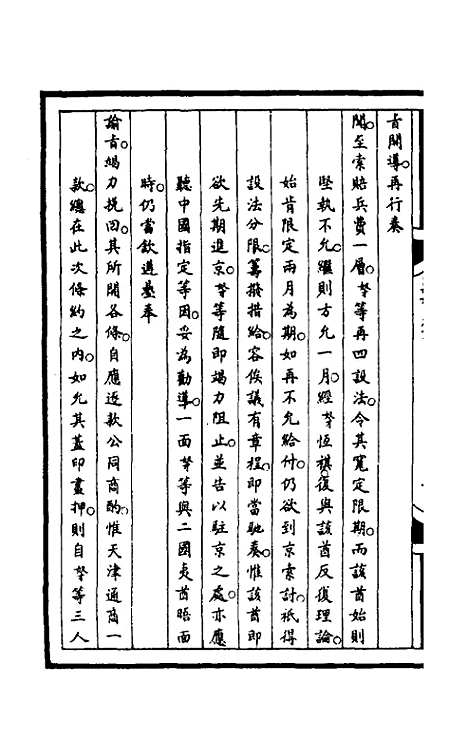 旨開導。再行奏
聞。至索賠兵費一層。㛃等再四設法。令其寬定限期。而該酋始則
堅執不允。繼則方允一月。經㛃恆祺。復與該酋反復理論。
始肯限定兩月為期。如再不允給付。仍欲到京索討。祇得
設法分限。籌撥措給。容俟議有章程。即當馳奏。惟該酋即
欲先期進京。㛃等隨即竭力阻止。並告以駐京之處。亦應
聽中國指定等因。妥為勸導。一面㛃等與二國夷酋晤面
時。仍當欽遵疊奉
諭旨。竭力挽回。其所開各條。自應逐款公同商酌。惟天津通商一
款。總在此次條約之內。如允其蓋印畫押。則自㛃等三人